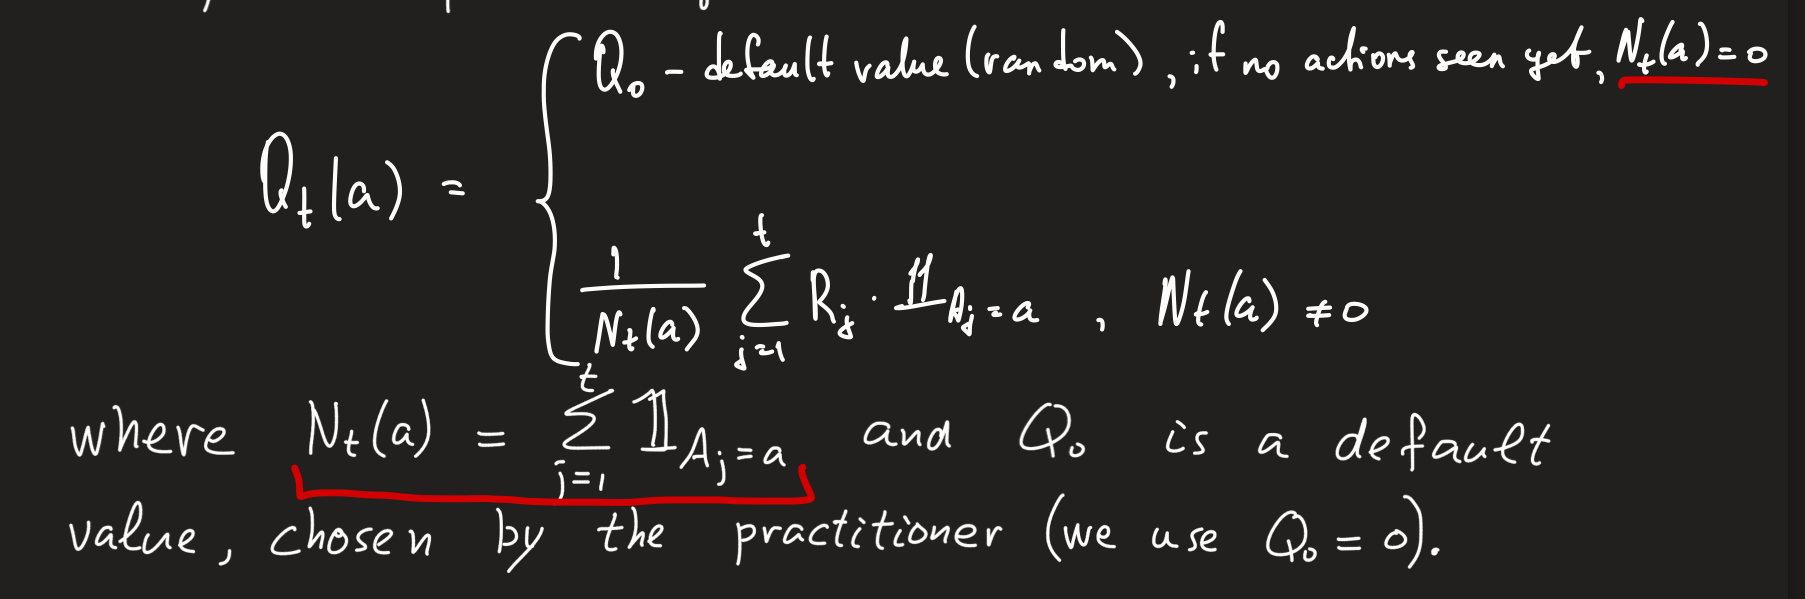 Q₀ - default value (random), if no actions seen yet, Nₜ(a) = 0
Qₜ(a) =
1/Nₜ(a) ∑_{j=1}^{t} Rⱼ · 𝟙_{Aⱼ=a} , Nₜ(a) ≠ 0
where Nₜ(a) = ∑_{j=1}^{t} 𝟙_{Aⱼ=a} and Q₀ is a default
value, chosen by the practitioner (we use Q₀ = 0).